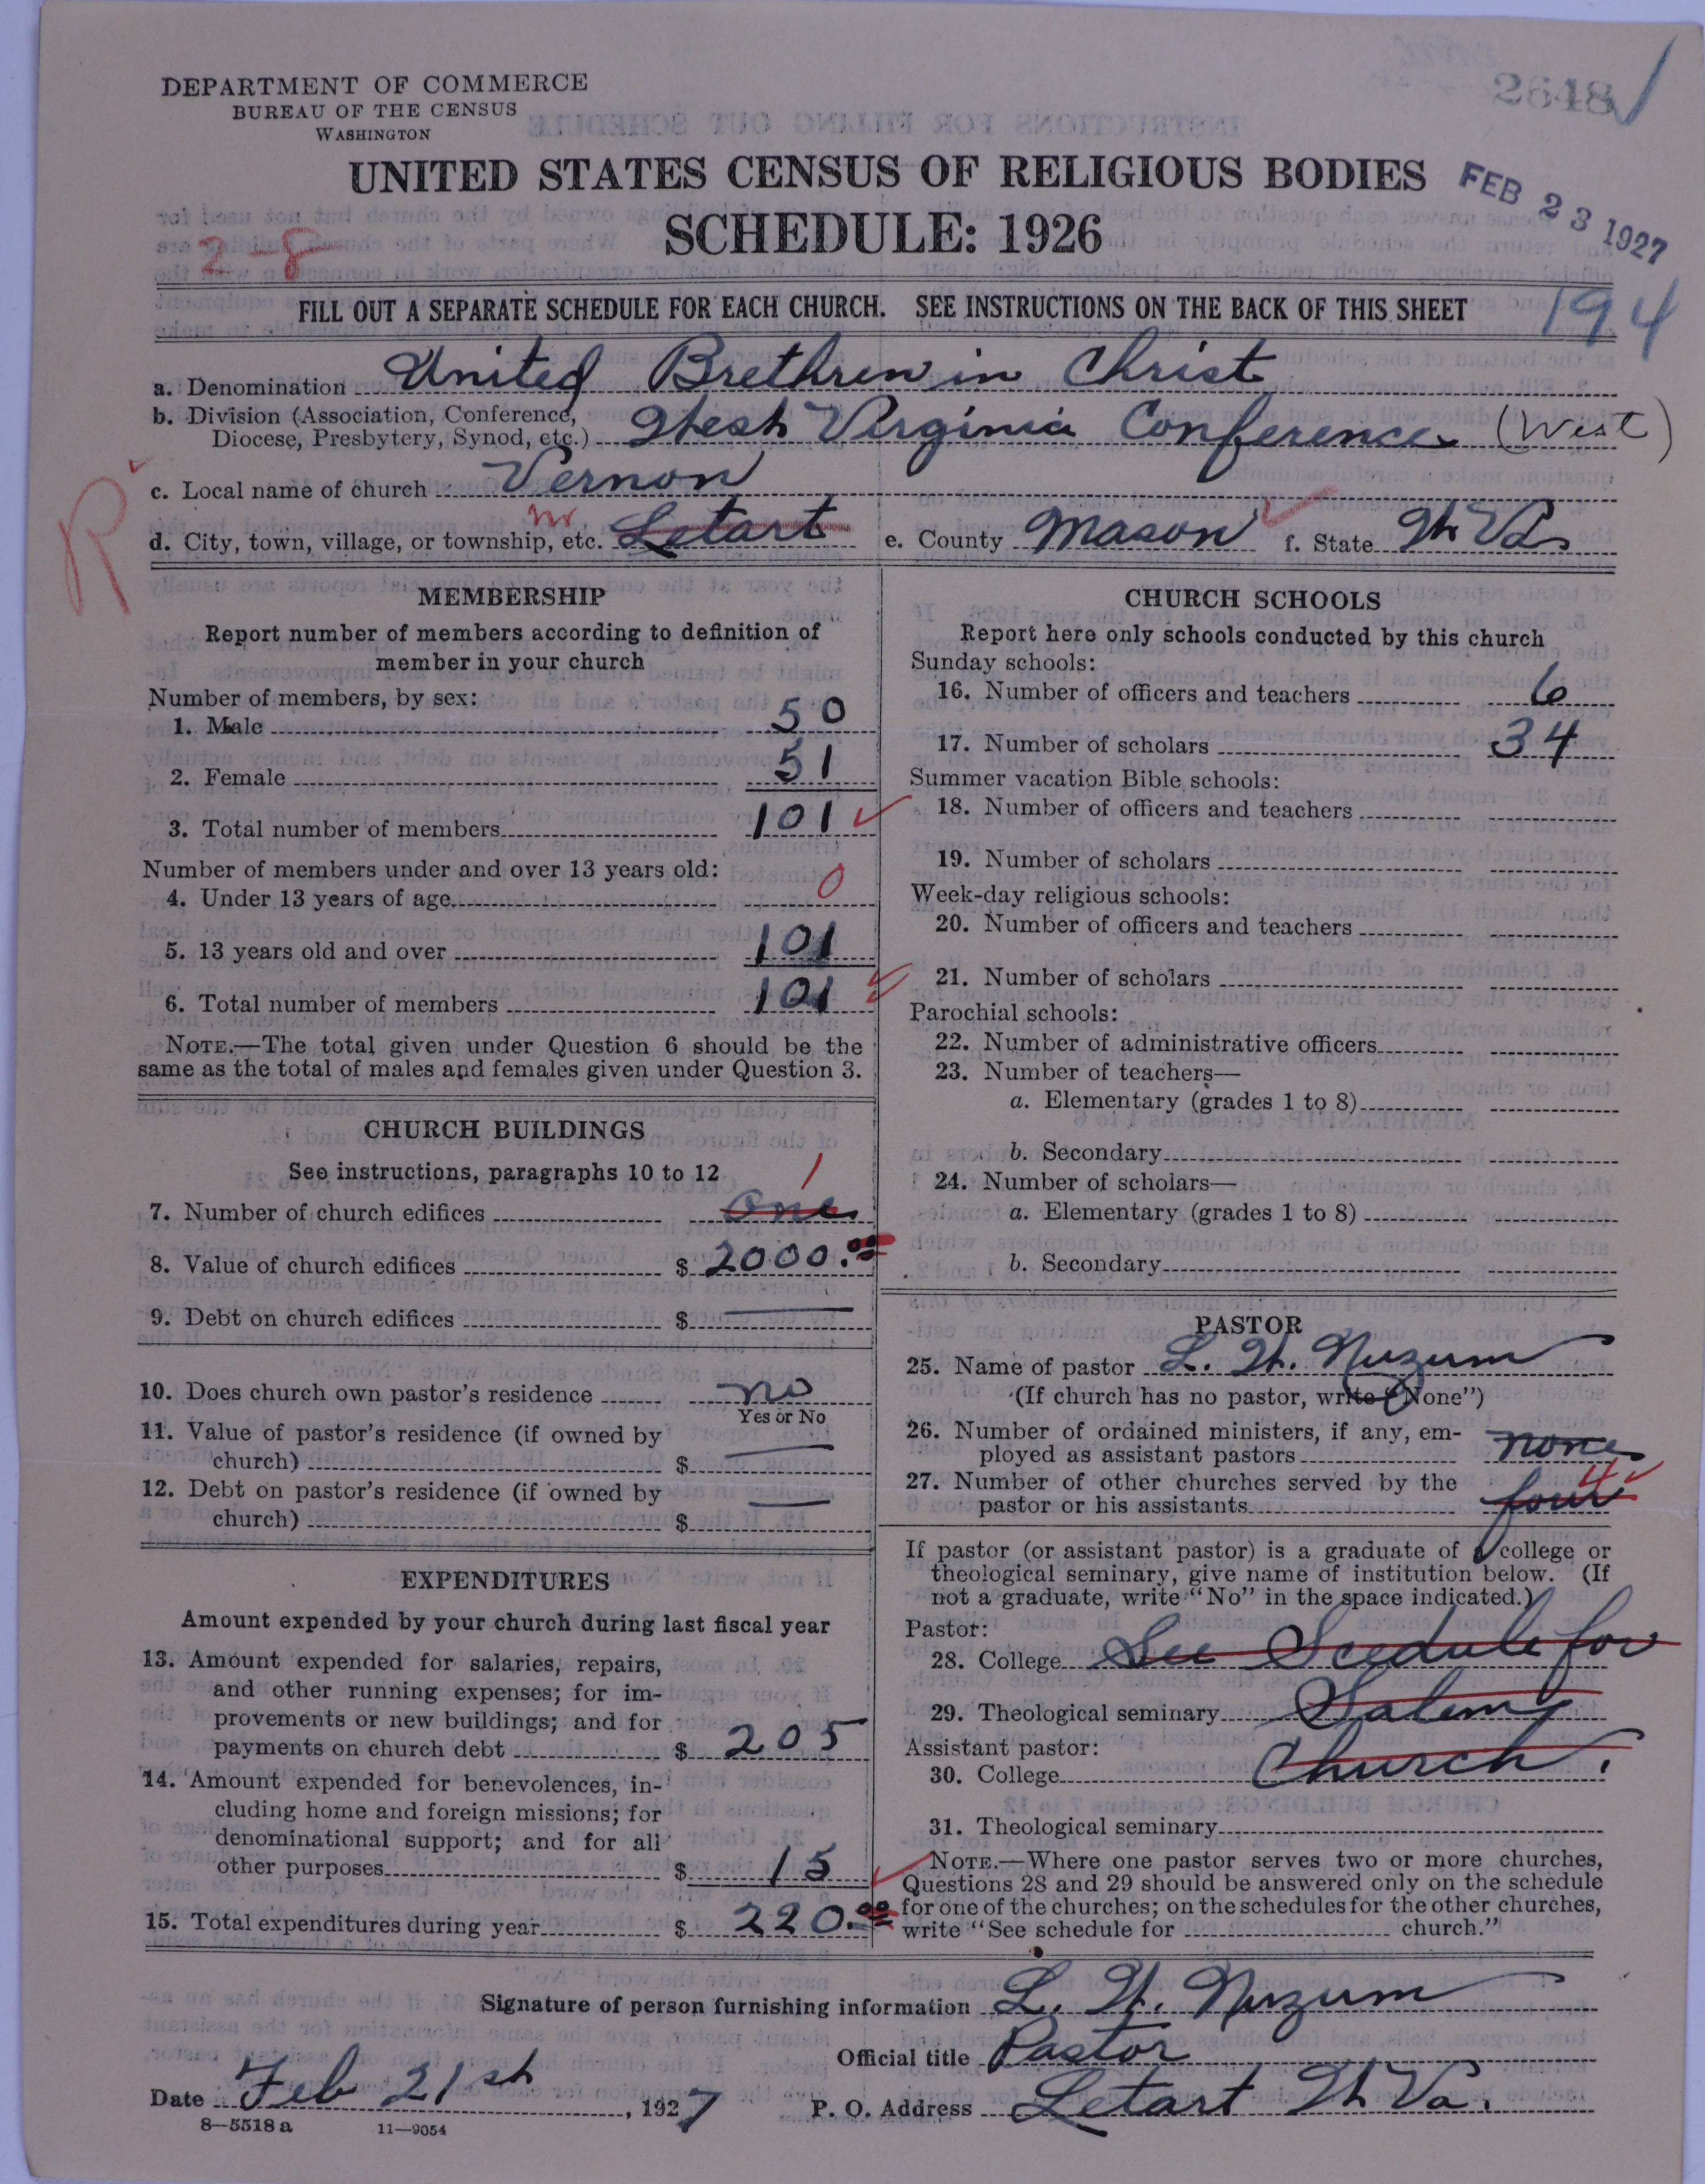 DEPARTMENT OF COMMERCE
BUREAU OF THE CENSUS
WASHINGTON
2648
UNITED STATES CENSUS OF RELIGIOUS BODIES
FEB 23 1927
SCHEDULE: 1926
2-8
FILL OUT A SEPARATE SCHEDULE FOR EACH CHURCH. SEE INSTRUCTIONS ON THE BACK OF THIS SHEET
194
a. Denomination United Brethren in Christ
b. Division (Association, Conference,
Diocese, Presbytery, Synod, etc.) West Virginia Conference (West)
c. Local name of church Vernon
R
d. City, town, village, or township, etc. Letart e. County Mason f. State W Va
MEMBERSHIP
Report number of members according to definition of
member in your church
Number of members, by sex:
1. Male 50
2. Female 51
3. Total number of members 101
Number of members under and over 13 years old:
4. Under 13 years of age 0
5. 13 years old and over 101
6. Total number of members 101
NOTE.—The total given under Question 6 should be the
same as the total of males and females given under Question 3.
CHURCH BUILDINGS
See instructions, paragraphs 10 to 12
7. Number of church edifices One 1
8. Value of church edifices $ 2000.00
9. Debt on church edifices $
10. Does church own pastor's residence no
Yes or No
11. Value of pastor's residence (if owned by
church) $
12. Debt on pastor's residence (if owned by
church) $
EXPENDITURES
Amount expended by your church during last fiscal year
13. Amount expended for salaries, repairs,
and other running expenses; for im-
provements or new buildings; and for
payments on church debt $ 205
14. Amount expended for benevolences, in-
cluding home and foreign missions; for
denominational support; and for all
other purposes $ 15
15. Total expenditures during year $ 220.00
CHURCH SCHOOLS
Report here only schools conducted by this church
Sunday schools:
16. Number of officers and teachers 6
17. Number of scholars 34
Summer vacation Bible schools:
18. Number of officers and teachers
19. Number of scholars
Week-day religious schools:
20. Number of officers and teachers
21. Number of scholars
Parochial schools:
22. Number of administrative officers
23. Number of teachers—
a. Elementary (grades 1 to 8)
b. Secondary
24. Number of scholars—
a. Elementary (grades 1 to 8)
b. Secondary
PASTOR
25. Name of pastor L. W. Nuzum
(If church has no pastor, write "None")
26. Number of ordained ministers, if any, em-
ployed as assistant pastors none
27. Number of other churches served by the
pastor or his assistants four 4
If pastor (or assistant pastor) is a graduate of a college or
theological seminary, give name of institution below. (If
not a graduate, write "No" in the space indicated.)
Pastor:
28. College See Scedule for
29. Theological seminary Salem
Assistant pastor:
30. College Church.
31. Theological seminary
NOTE.—Where one pastor serves two or more churches,
Questions 28 and 29 should be answered only on the schedule
for one of the churches; on the schedules for the other churches,
write "See schedule for church."
Signature of person furnishing information L. W. Nuzum
Official title Pastor
Date Feb 21st, 1927 P. O. Address Letart W Va.
8—5518 a 11—9054